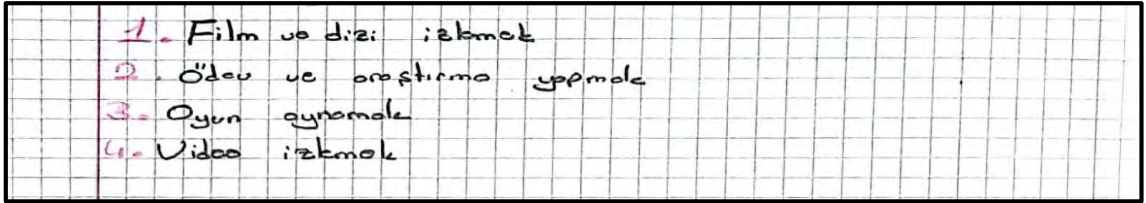 1. Film ve dizi izlemek
2. Ödev ve araştırma yapmak
3. Oyun oynamak
4. Video izlemek